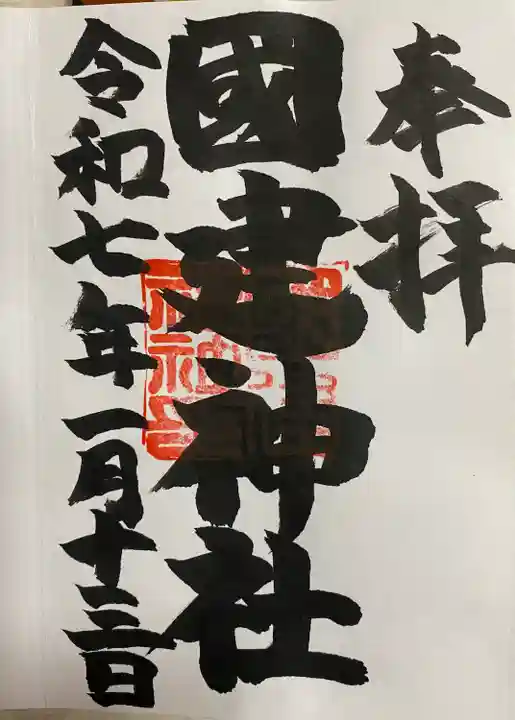 奉拝
國建神社
令和七年一月十三日